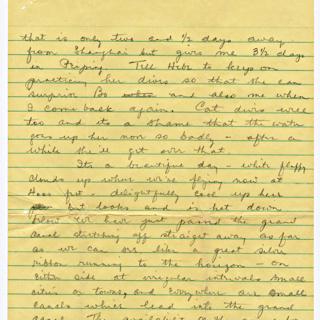 that is only two and 1/2 days away
from Shanghai but gives me 3 1/2 days
in Peiping. Tell Hebe to keep on
practicing her dives so that she can
surprise Bo and also me when
I come back again. Cat dives will
too and its a shame that the water
goes up her nose so badly - after a
while she'll get over that.
Its a beautiful day - white fluffy
clouds up where we're flying now at
feet - delightfully cool up here
but looks and is hot down
below. We have just passed the grand
canal stretching off straight away as far
as we can see like a great silver
ribbon running to the horizon - on
either side at irregular intervals small
cities or towns and everywhere are small
canals which lead into the grand
canal. The